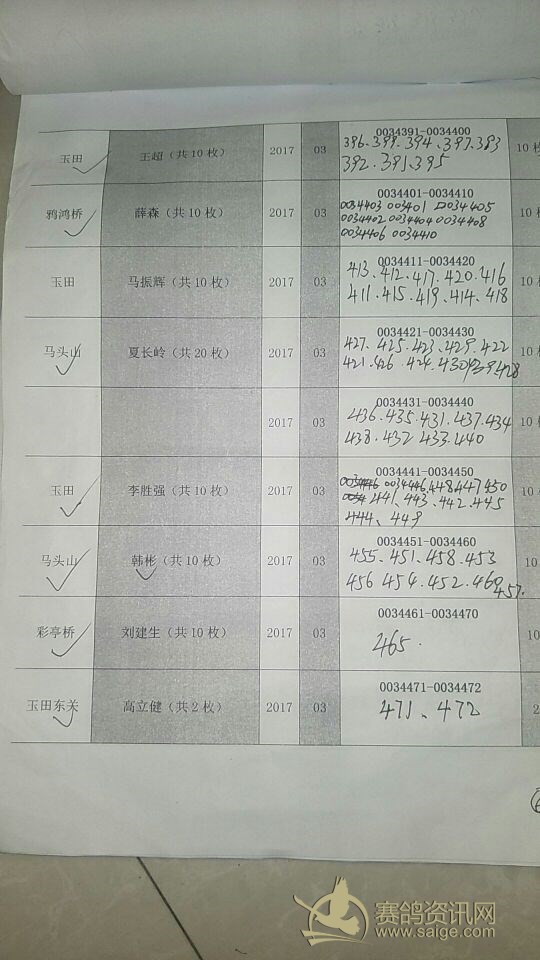 0034391-0034400
玉田 王超（共10枚） 2017 03 396.399.394、397.393 10枚
392.391.395
0034401-0034410
鸦鸿桥 薛森（共10枚） 2017 03 0034403 003401 0034405
0034402 0034404 0034408
0034406 0034410
0034411-0034420
玉田 马振辉（共10枚） 2017 03 413、412.417.420.416
411.415.419.414.418
0034421-0034430
马头山 夏长岭（共20枚） 2017 03 427.425.423.429.422
421.426.424.430 428
0034431-0034440
2017 03 436.435.431.437.434
438.432 433.440
0034441-0034450
玉田 李胜强（共10枚） 2017 03 0034446.448 447 450
441、443、442.445
444、449
0034451-0034460
马头山 韩彬（共10枚） 2017 03 455.451.458.453
456 454.452.460 457.
0034461-0034470
彩亭桥 刘建生（共10枚） 2017 03 465.
0034471-0034472
玉田东关 高立健（共2枚） 2017 03 471、472
赛鸽资讯网
www.saige.com